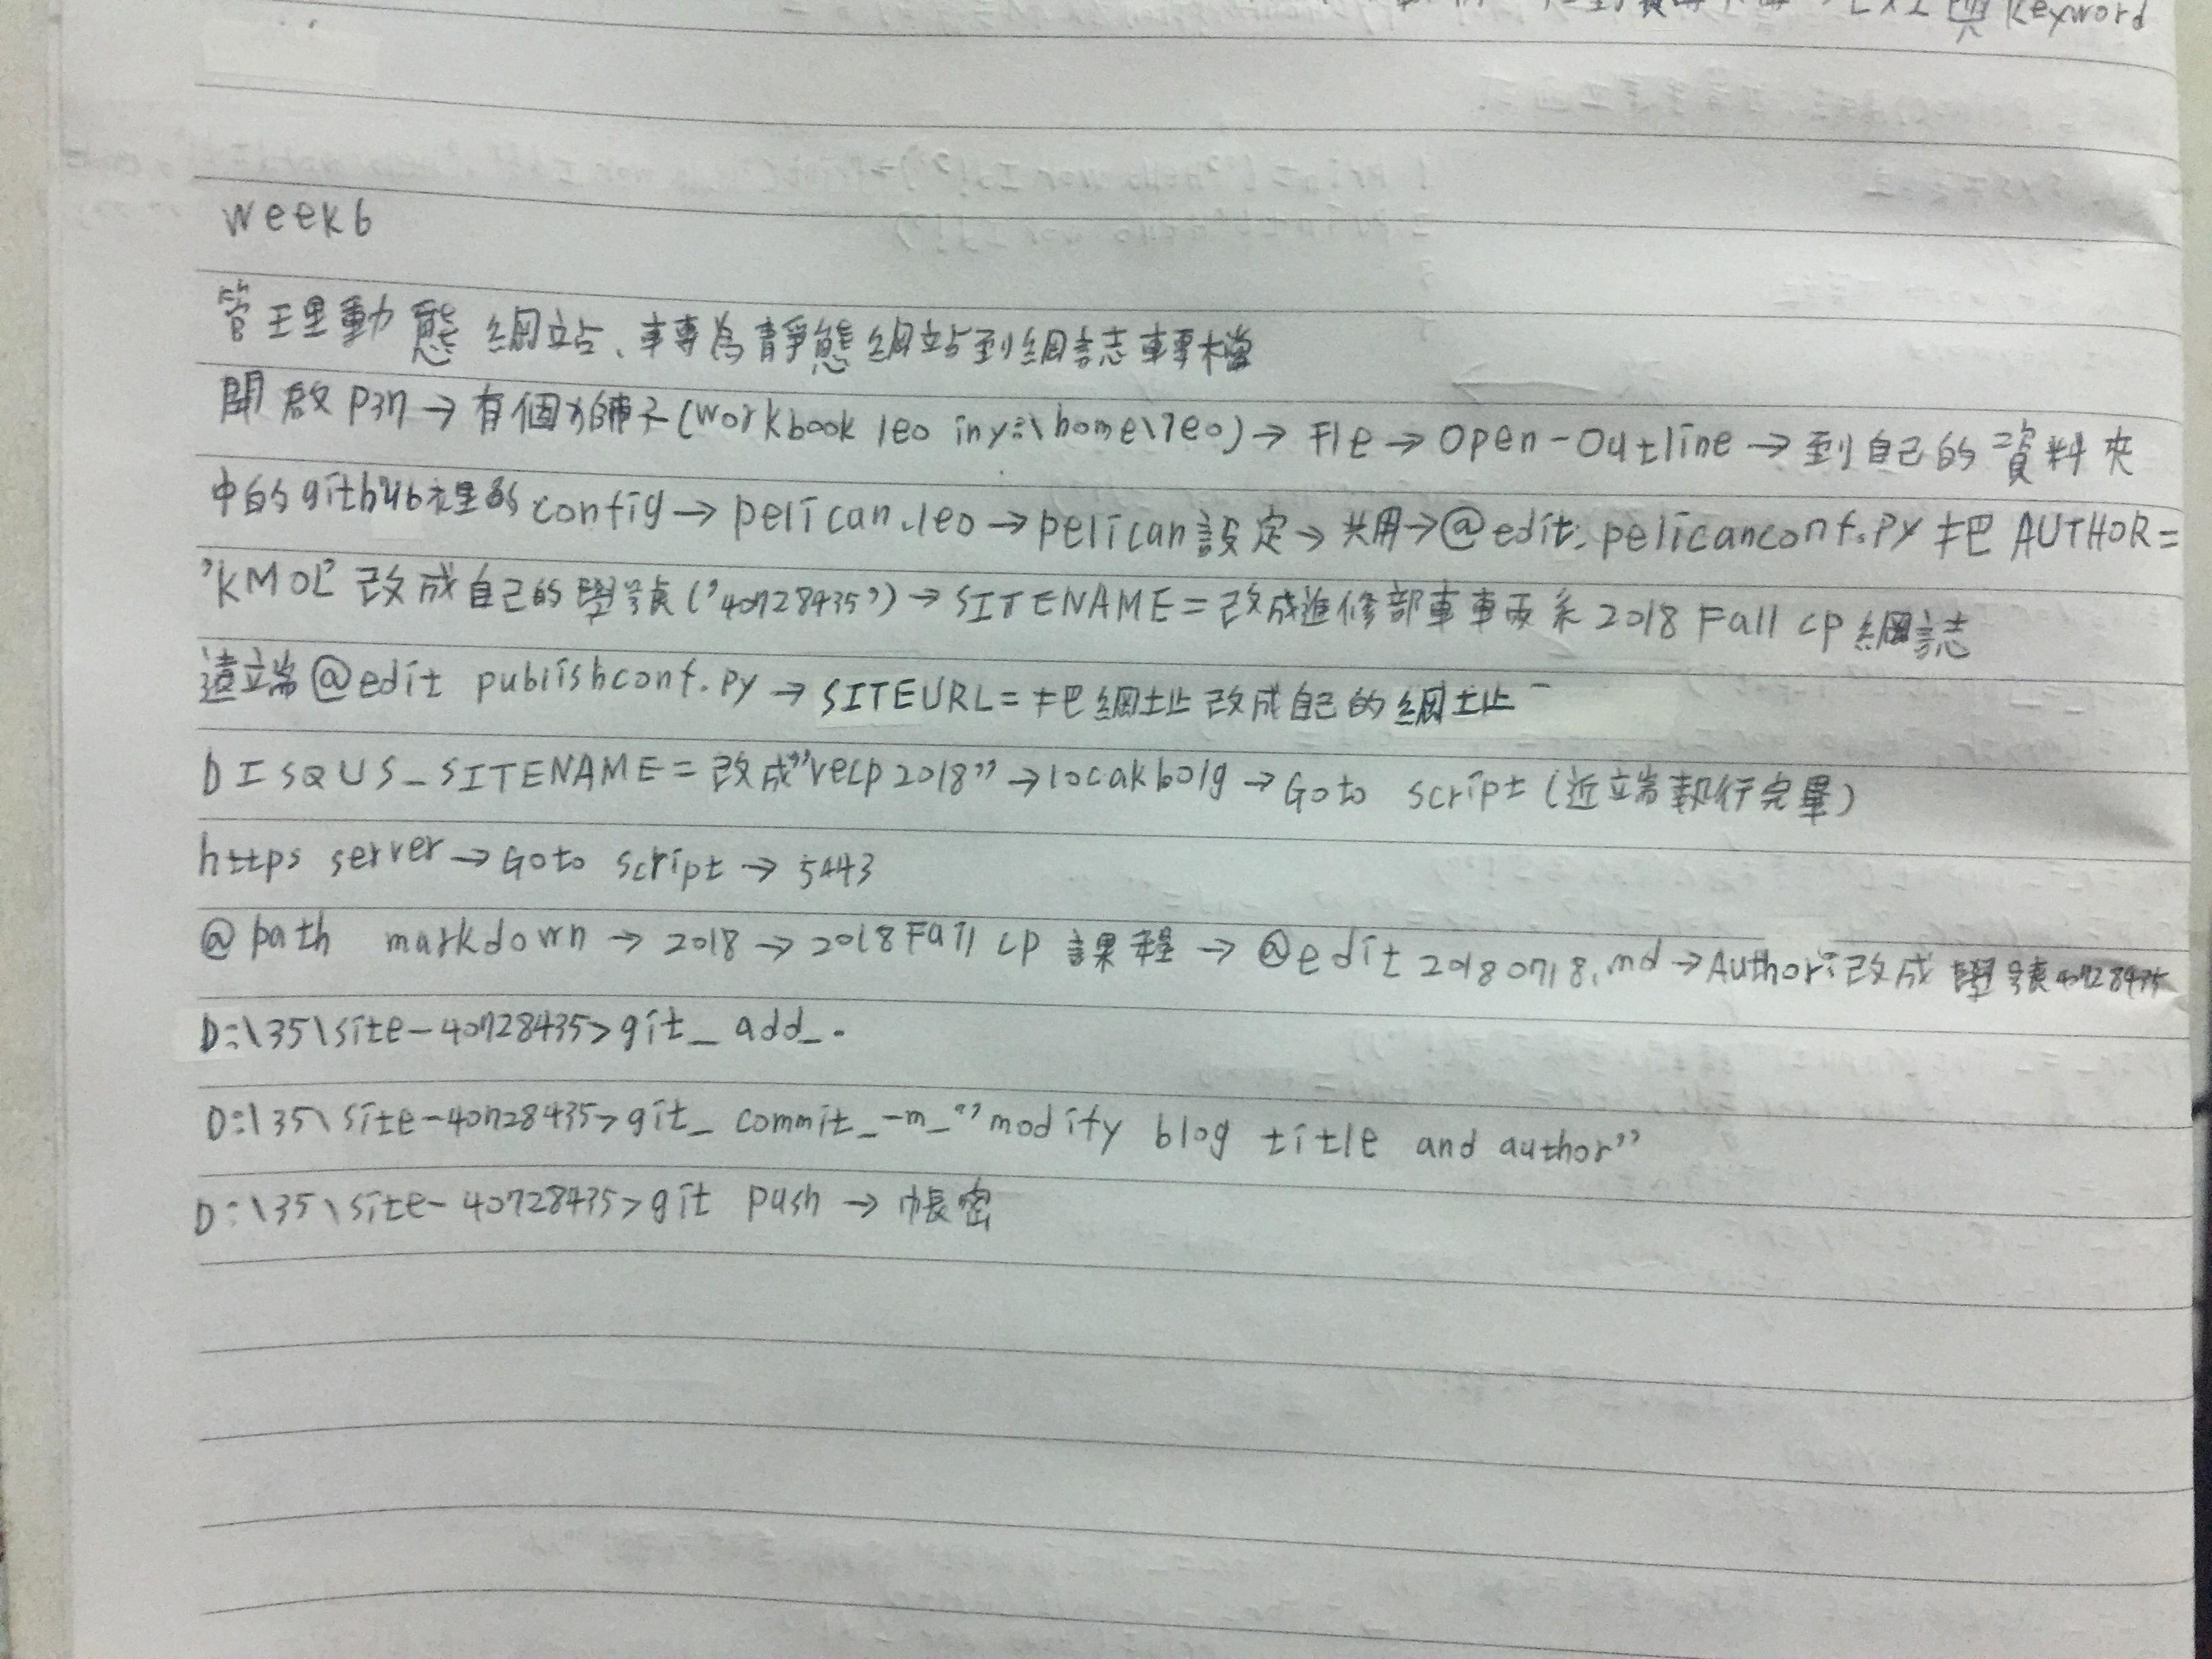 與 keyword
week6
管理動態網站、轉為靜態網站到網誌轉檔
開啟 P37→有個獅子(workbook leo iny:\home\leo)→File→Open-Outline→到自己的資料夾
中的github裡的config→pelican.leo→pelican設定→共用→@edit: pelicanconf.py 把 AUTHOR=
'KMOL' 改成自己的學號('40728435')→SITENAME=改成進修部車輛系 2018 Fall cp 網誌
遠端@edit publishconf.py→SITEURL=把網址改成自己的網址
DISQUS_SITENAME=改成"vecp2018"→locakbolg→Goto script(近端執行完畢)
https server→Goto script→5443
@path markdown→2018→2018Fall cp 課程→@edit 20180718.md→Author:改成學號40728435
D:\35\site-40728435>git_add_.
D:\35\site-40728435>git_commit_-m_"modify blog title and author"
D:\35\site-40728435>git push→帳密